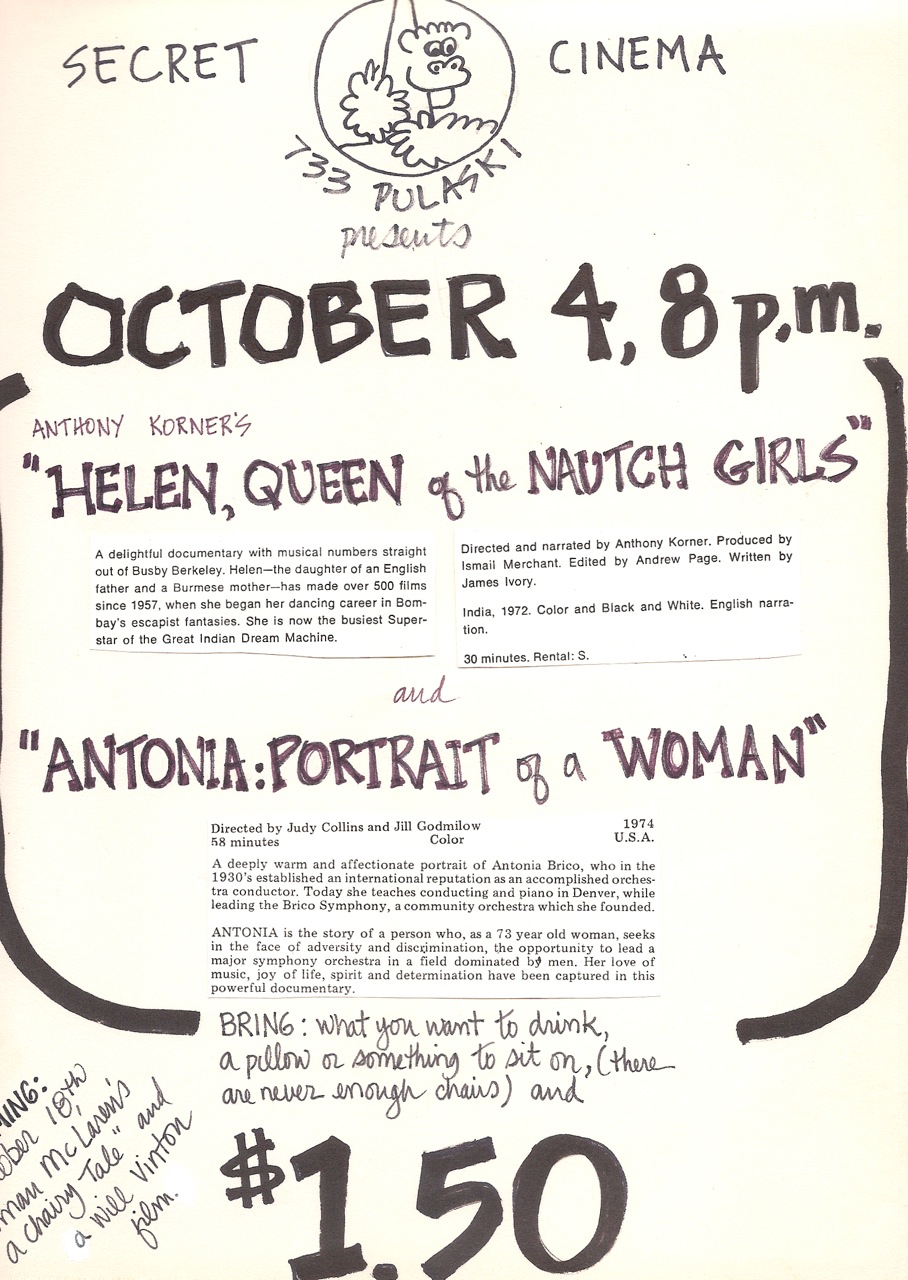 SECRET CINEMA
733 PULASKI
presents
OCTOBER 4, 8 p.m.
ANTHONY KORNER'S
"HELEN, QUEEN of the NAUTCH GIRLS"
A delightful documentary with musical numbers straight
out of Busby Berkeley. Helen—the daughter of an English
father and a Burmese mother—has made over 500 films
since 1957, when she began her dancing career in Bom-
bay's escapist fantasies. She is now the busiest Super-
star of the Great Indian Dream Machine.
Directed and narrated by Anthony Korner. Produced by
Ismail Merchant. Edited by Andrew Page. Written by
James Ivory.
India, 1972. Color and Black and White. English narra-
tion.
30 minutes. Rental: S.
and
"ANTONIA: PORTRAIT of a WOMAN"
Directed by Judy Collins and Jill Godmilow 1974
58 minutes Color U.S.A.
A deeply warm and affectionate portrait of Antonia Brico, who in the
1930's established an international reputation as an accomplished orches-
tra conductor. Today she teaches conducting and piano in Denver, while
leading the Brico Symphony, a community orchestra which she founded.
ANTONIA is the story of a person who, as a 73 year old woman, seeks
in the face of adversity and discrimination, the opportunity to lead a
major symphony orchestra in a field dominated by men. Her love of
music, joy of life, spirit and determination have been captured in this
powerful documentary.
BRING: what you want to drink,
a pillow or something to sit on, (there
are never enough chairs) and
$1.50
MING:
ober 18th
man McLaren's
a chairy Tale" and
a Will Vinton
film.